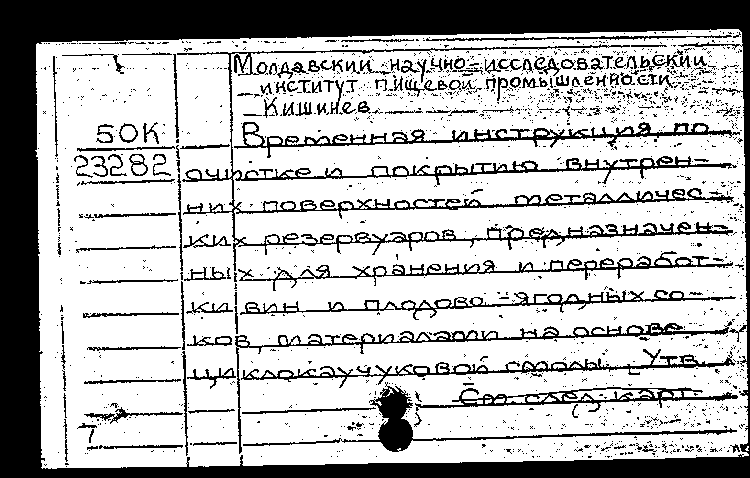 Молдавский научно-исследовательский
институт пищевой промышленности
Кишинев
50К Временная инструкция по
23282 очистке и покрытию внутрен-
них поверхностей металличес-
ких резервуаров, предназначен-
ных для хранения и переработ-
ки вин и плодово-ягодных со-
ков, материалами на основе
циклокаучуковой смолы. Утв.
См. след. карт.
7